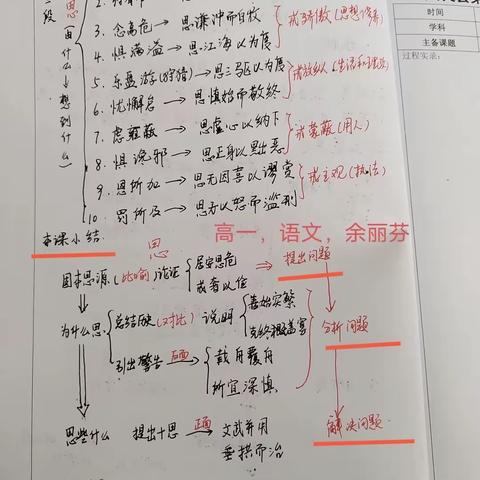 段
思
由什么→想到什么
3. 念高危→思谦冲而自牧
戒骄傲(思想修养)
4. 惧满溢→思江海以为度
5. 乐盘游(狩猎)→思三驱以为度
戒放纵
6. 忧懈怠→思慎始而敬终
7. 虑壅蔽→思虚心以纳下
戒蒙蔽(用人)
8. 惧谗邪→思正身以黜恶
9. 恩所加→思无因喜以谬赏
戒主观(执法)
10. 罚所及→思无以怒而滥刑
本课小结
思
高一，语文，余丽芬
固本思源(比喻)论证
居安思危
戒奢以俭
⇒提出问题
为什么思
总结历史(对比)说明
善始实繁
克终者盖寡
分析问题
引出警告 反面→
载舟覆舟
所宜深慎
思些什么 提出十思 正面→ 文武并用
垂拱而治
解决问题
时间
学科
主备课题
过程实录: